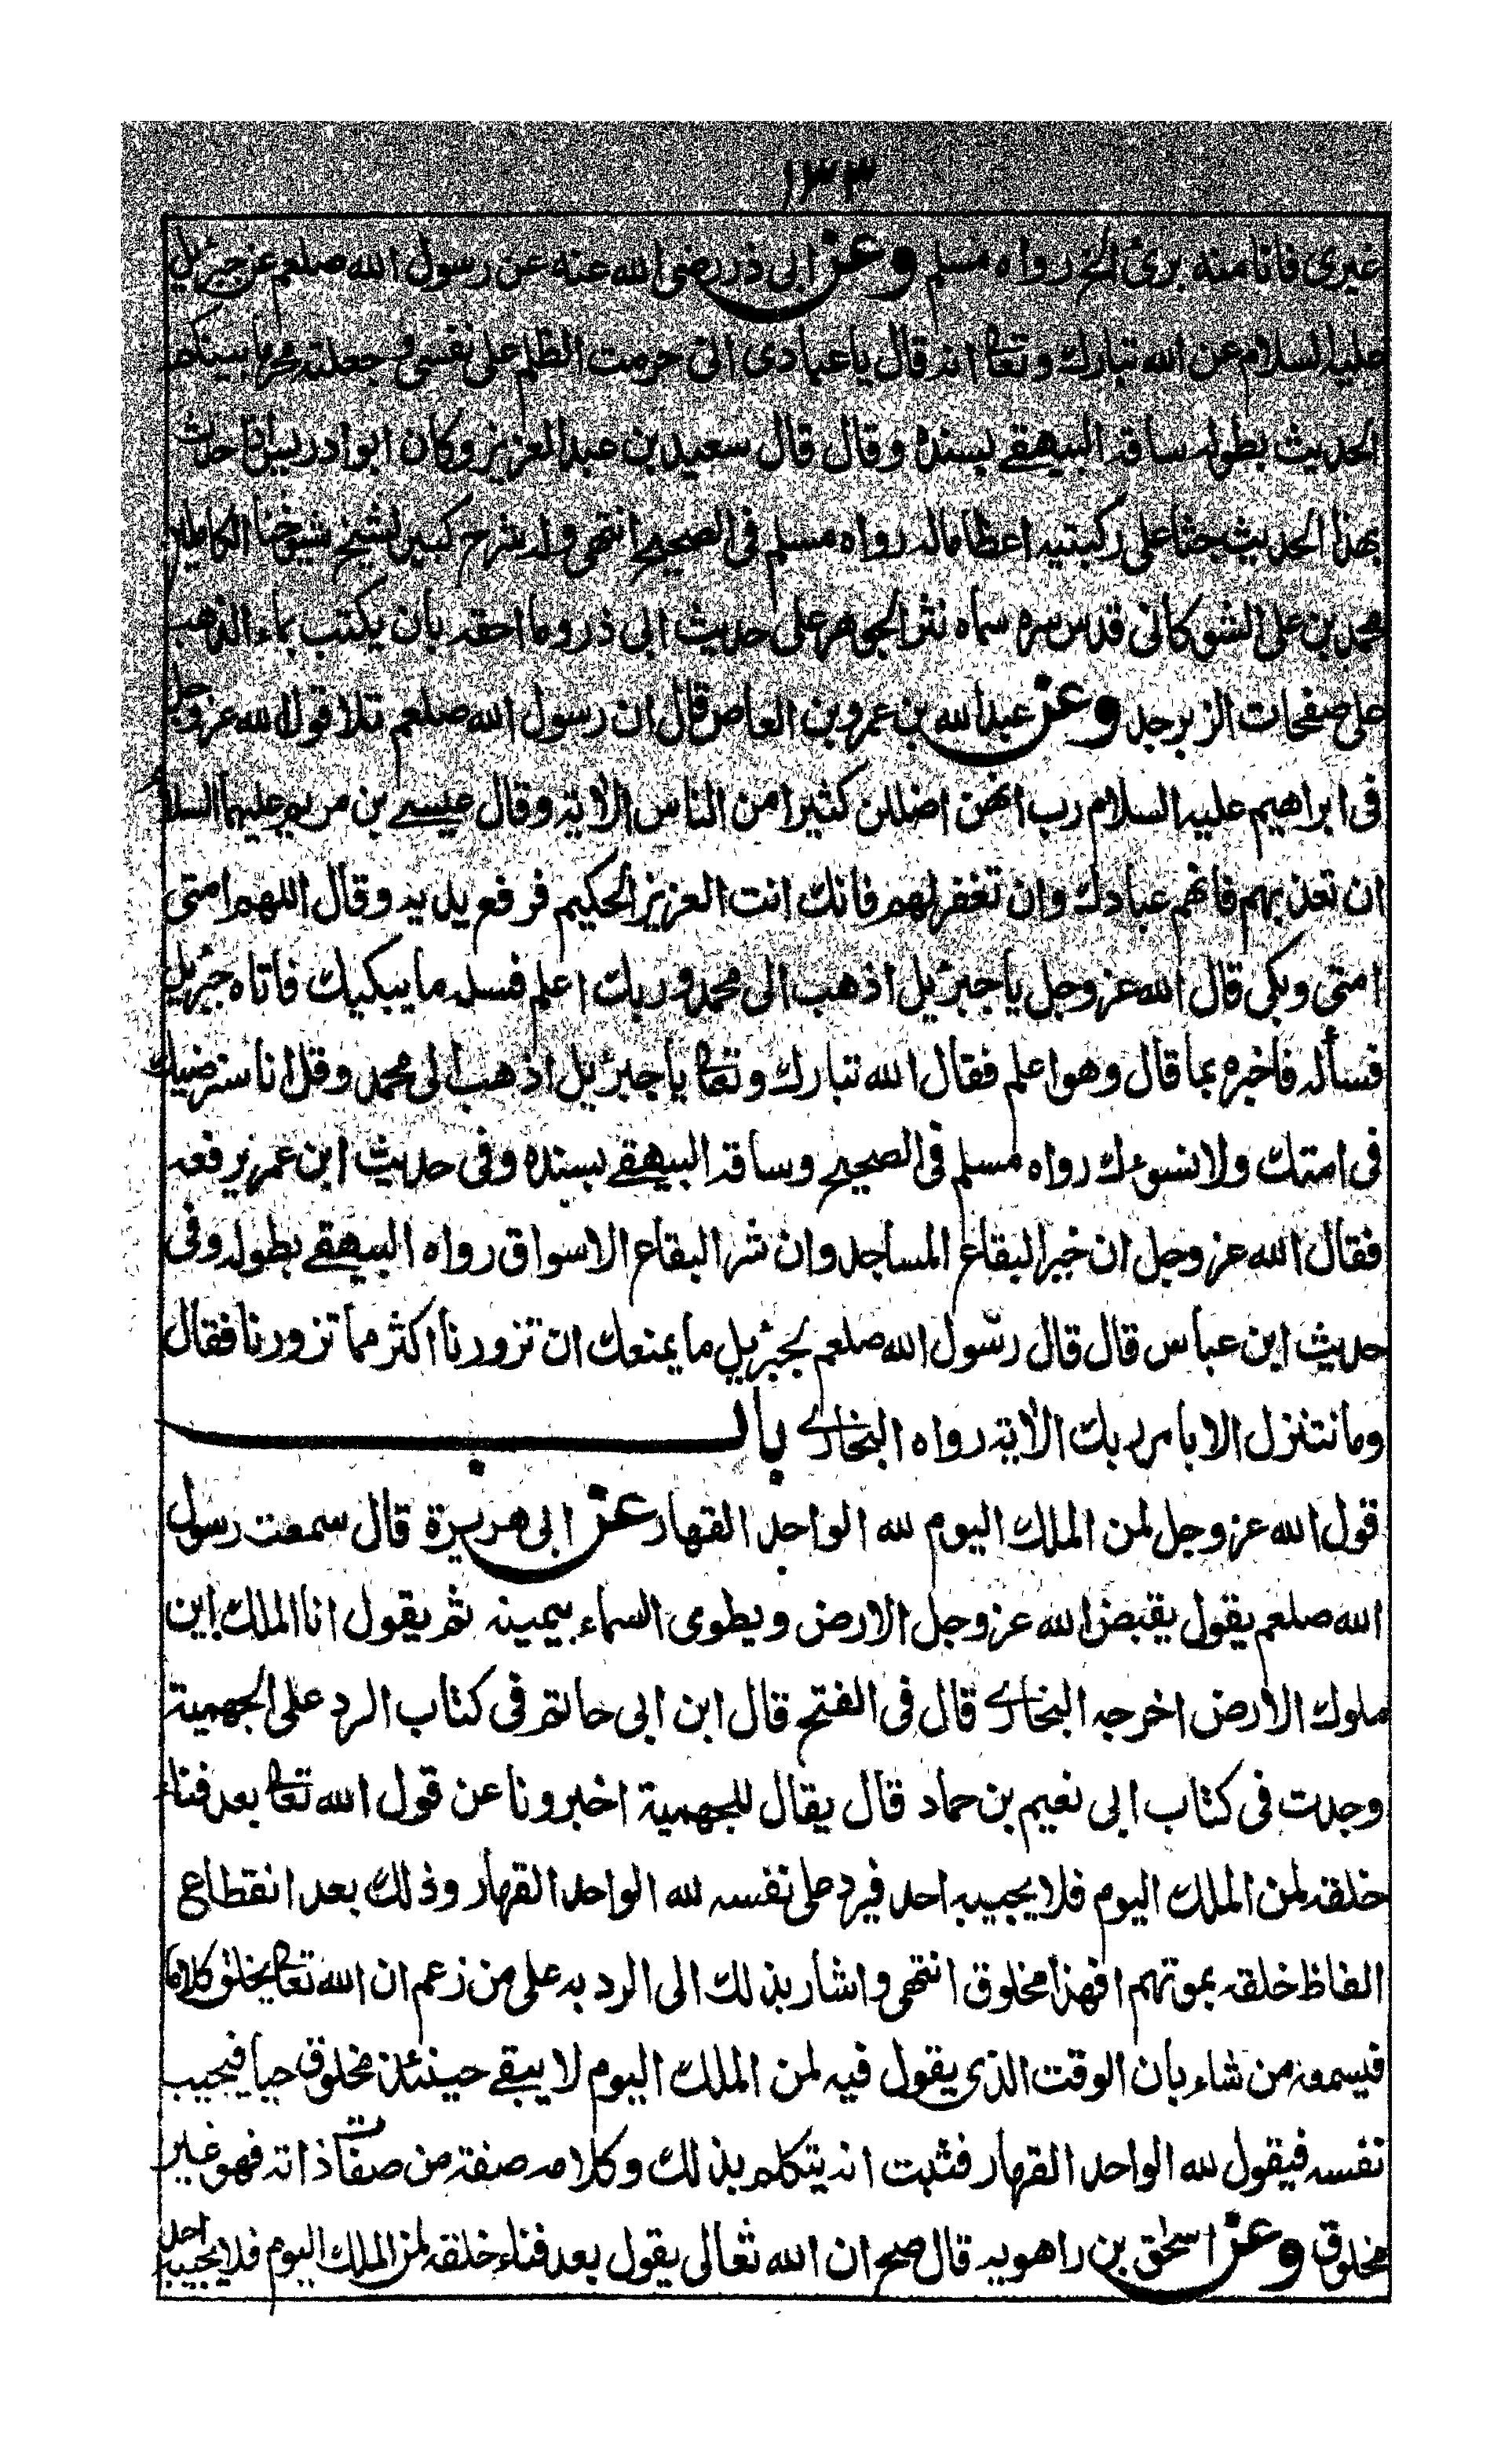 ١٣٣
غيرى فانا منه برئ الخ رواه مسلم وعن ابى ذر رضى الله عنه عن رسول الله صلعم عن جبرئيل
عليه السلام عن الله تبارك وتعالى انه قال يا عبادى انى حرمت الظلم على نفسى وجعلته محرما بينكم
الحديث بطوله ساقه البيهقے بسنده وقال قال سعيد بن عبد العزيز وكان ابو ادريس اذا حدث
بهذا الحديث جثا على ركبتيه اعظاما له رواه مسلم فى الصحيح انتهى وله شرح كبير لشيخ شيوخنا الكاملين
محمد بن على الشوكانى قدس سره سماه نثر الجوهر على حديث ابى ذر وما احقه بان يكتب بماء الذهب
على صفحات الزبرجد وعن عبد الله بن عمرو بن العاص قال ان رسول الله صلعم تلا قول الله عز وجل
فى ابراهيم عليه السلام رب انهن اضللن كثيرا من الناس الاٰية وقال عيسے بن مريم عليهما السلام
ان تعذبهم فانهم عبادك وان تغفر لهم فانك انت العزيز الحكيم فرفع يديه وقال اللهم امتى
امتى وبكى قال الله عز وجل يا جبرئيل اذهب الى محمد وربك اعلم فسله ما يبكيك فاتاه جبرئيل
فسأله فاخبره بما قال وهو اعلم فقال الله تبارك وتعالى يا جبرئيل اذهب الى محمد وقل انا سنرضيك
فى امتك ولا نسوءك رواه مسلم فى الصحيح وساقه البيهقے بسنده وفى حديث ابن عمر يرفعه
فقال الله عز وجل ان خير البقاع المساجد وان شر البقاع الاسواق رواه البيهقے بطوله وفى
حديث ابن عباس قال قال رسول الله صلعم لجبرئيل ما يمنعك ان تزورنا اكثر مما تزورنا فقال
وما نتنزل الا بامر ربك الاٰية رواه البخارے باب
قول الله عز وجل لمن الملك اليوم لله الواحد القهار عن ابى هريرة قال سمعت رسول
الله صلعم يقول يقبض الله عز وجل الارض ويطوى السماء بيمينه ثم يقول انا الملك اين
ملوك الارض اخرجه البخارے قال فى الفتح قال ابن ابى حاتم فى كتاب الرد على الجهمية
وجدت فى كتاب ابى نعيم بن حماد قال يقال للجهمية اخبرونا عن قول الله تعالى بعد فناء
خلقه لمن الملك اليوم فلا يجيبه احد فيرد على نفسه لله الواحد القهار وذلك بعد انقطاع
الفاظ خلقه بموتهم افهذا مخلوق انتهى واشار بذلك الى الرد به على من زعم ان الله تعالى يخلق كلاما
فيسمعه من شاء بان الوقت الذى يقول فيه لمن الملك اليوم لا يبقے حينئذ مخلوق حيا فيجيب
نفسه فيقول لله الواحد القهار فثبت انه يتكلم بذلك وكلامه صفة من صفات ذاته فهو غير
مخلوق وعن اسحق بن راهويه قال صح ان الله تعالى يقول بعد فناء خلقه لمن الملك اليوم فلا يجيبه احد